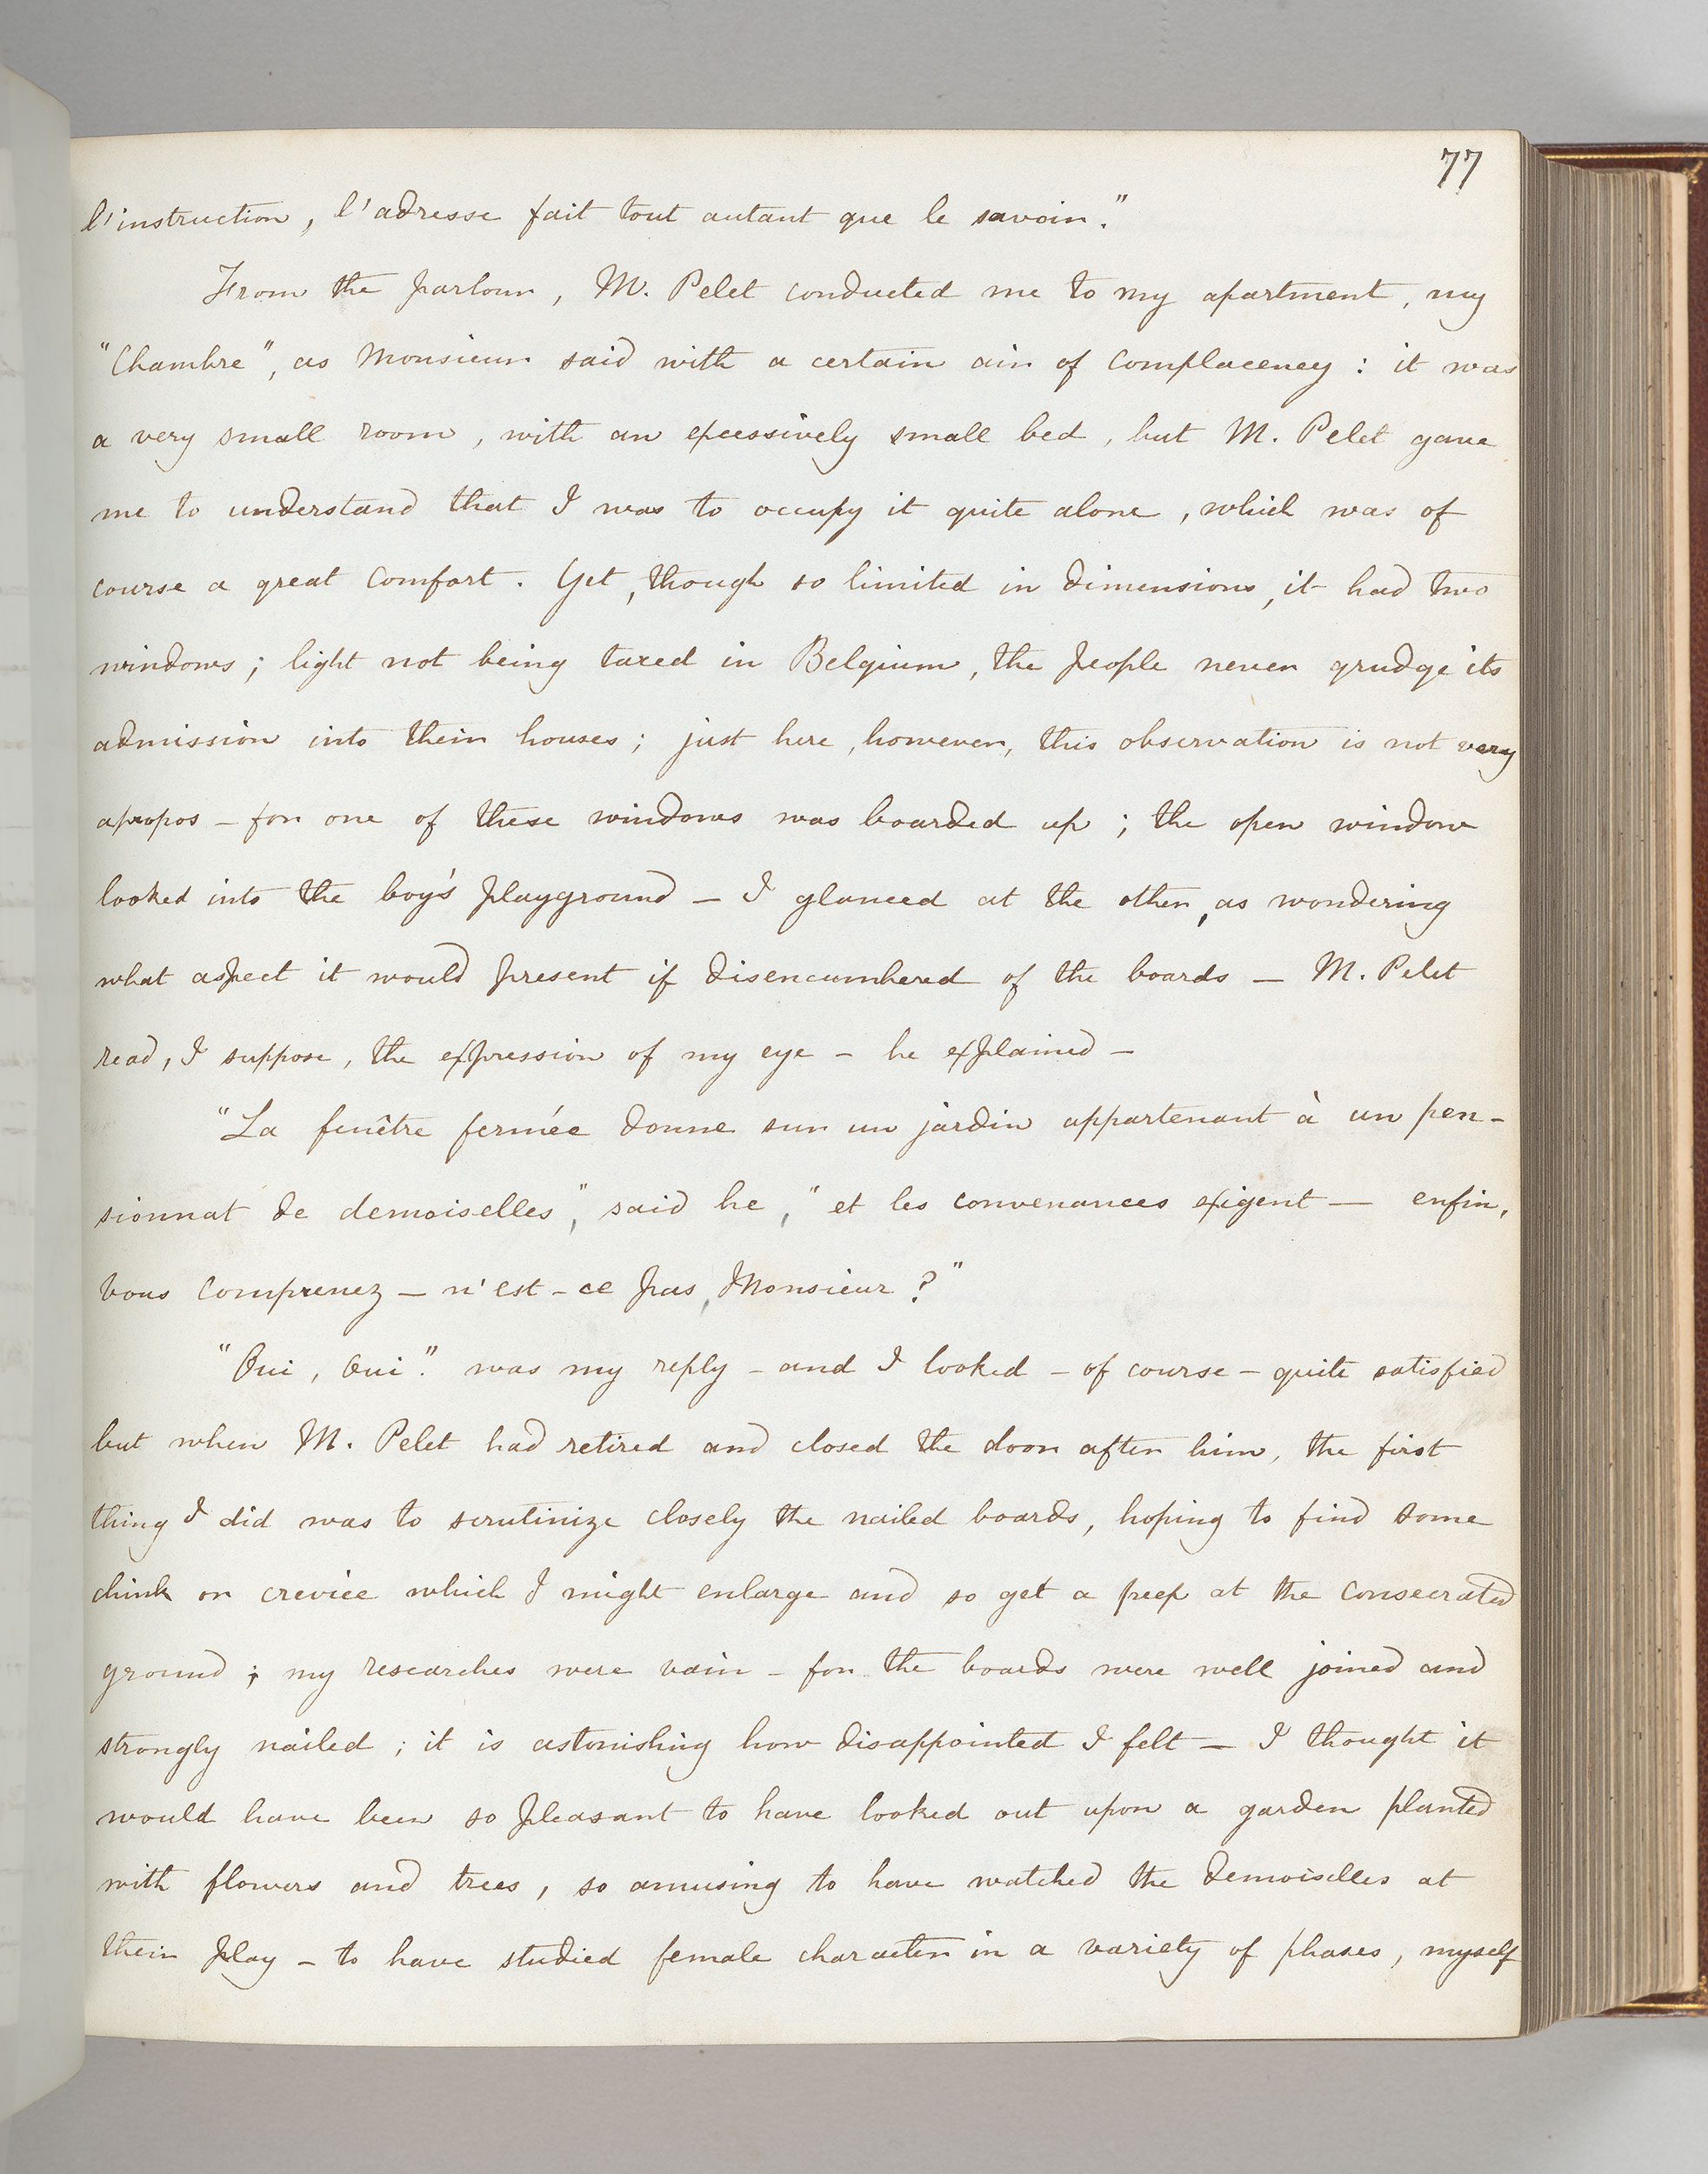 77
l'instruction, l'adresse fait tout autant que le savoir."
From the parlour, M. Pelet conducted me to my apartment, my
"Chambre", as Monsieur said with a certain air of complacency : it was
a very small room, with an excessively small bed, but M. Pelet gave
me to understand that I was to occupy it quite alone, which was of
course a great comfort. Yet, though so limited in dimensions, it had two
windows; light not being taxed in Belgium, the people never grudge its
admission into their houses; just here, however, this observation is not very
apropos – for one of these windows was boarded up; the open window
looked into the boy's playground – I glanced at the other, as wondering
what aspect it would present if disencumbered of the boards – M. Pelet
read, I suppose, the expression of my eye – he explained –
"La fenêtre fermée donne sur un jardin appartenant à un pen-
sionnat de demoiselles", said he, "et les convenances exigent — enfin,
vous comprenez – n'est-ce pas, Monsieur?"
"Oui, Oui". was my reply – and I looked – of course – quite satisfied
but when M. Pelet had retired and closed the door after him, the first
thing I did was to scrutinize closely the nailed boards, hoping to find some
chink or crevice which I might enlarge and so get a peep at the consecrated
ground; my researches were vain – for the boards were well joined and
strongly nailed; it is astonishing how disappointed I felt – I thought it
would have been so pleasant to have looked out upon a garden planted
with flowers and trees, so amusing to have watched the demoiselles at
their play – to have studied female character in a variety of phases, myself